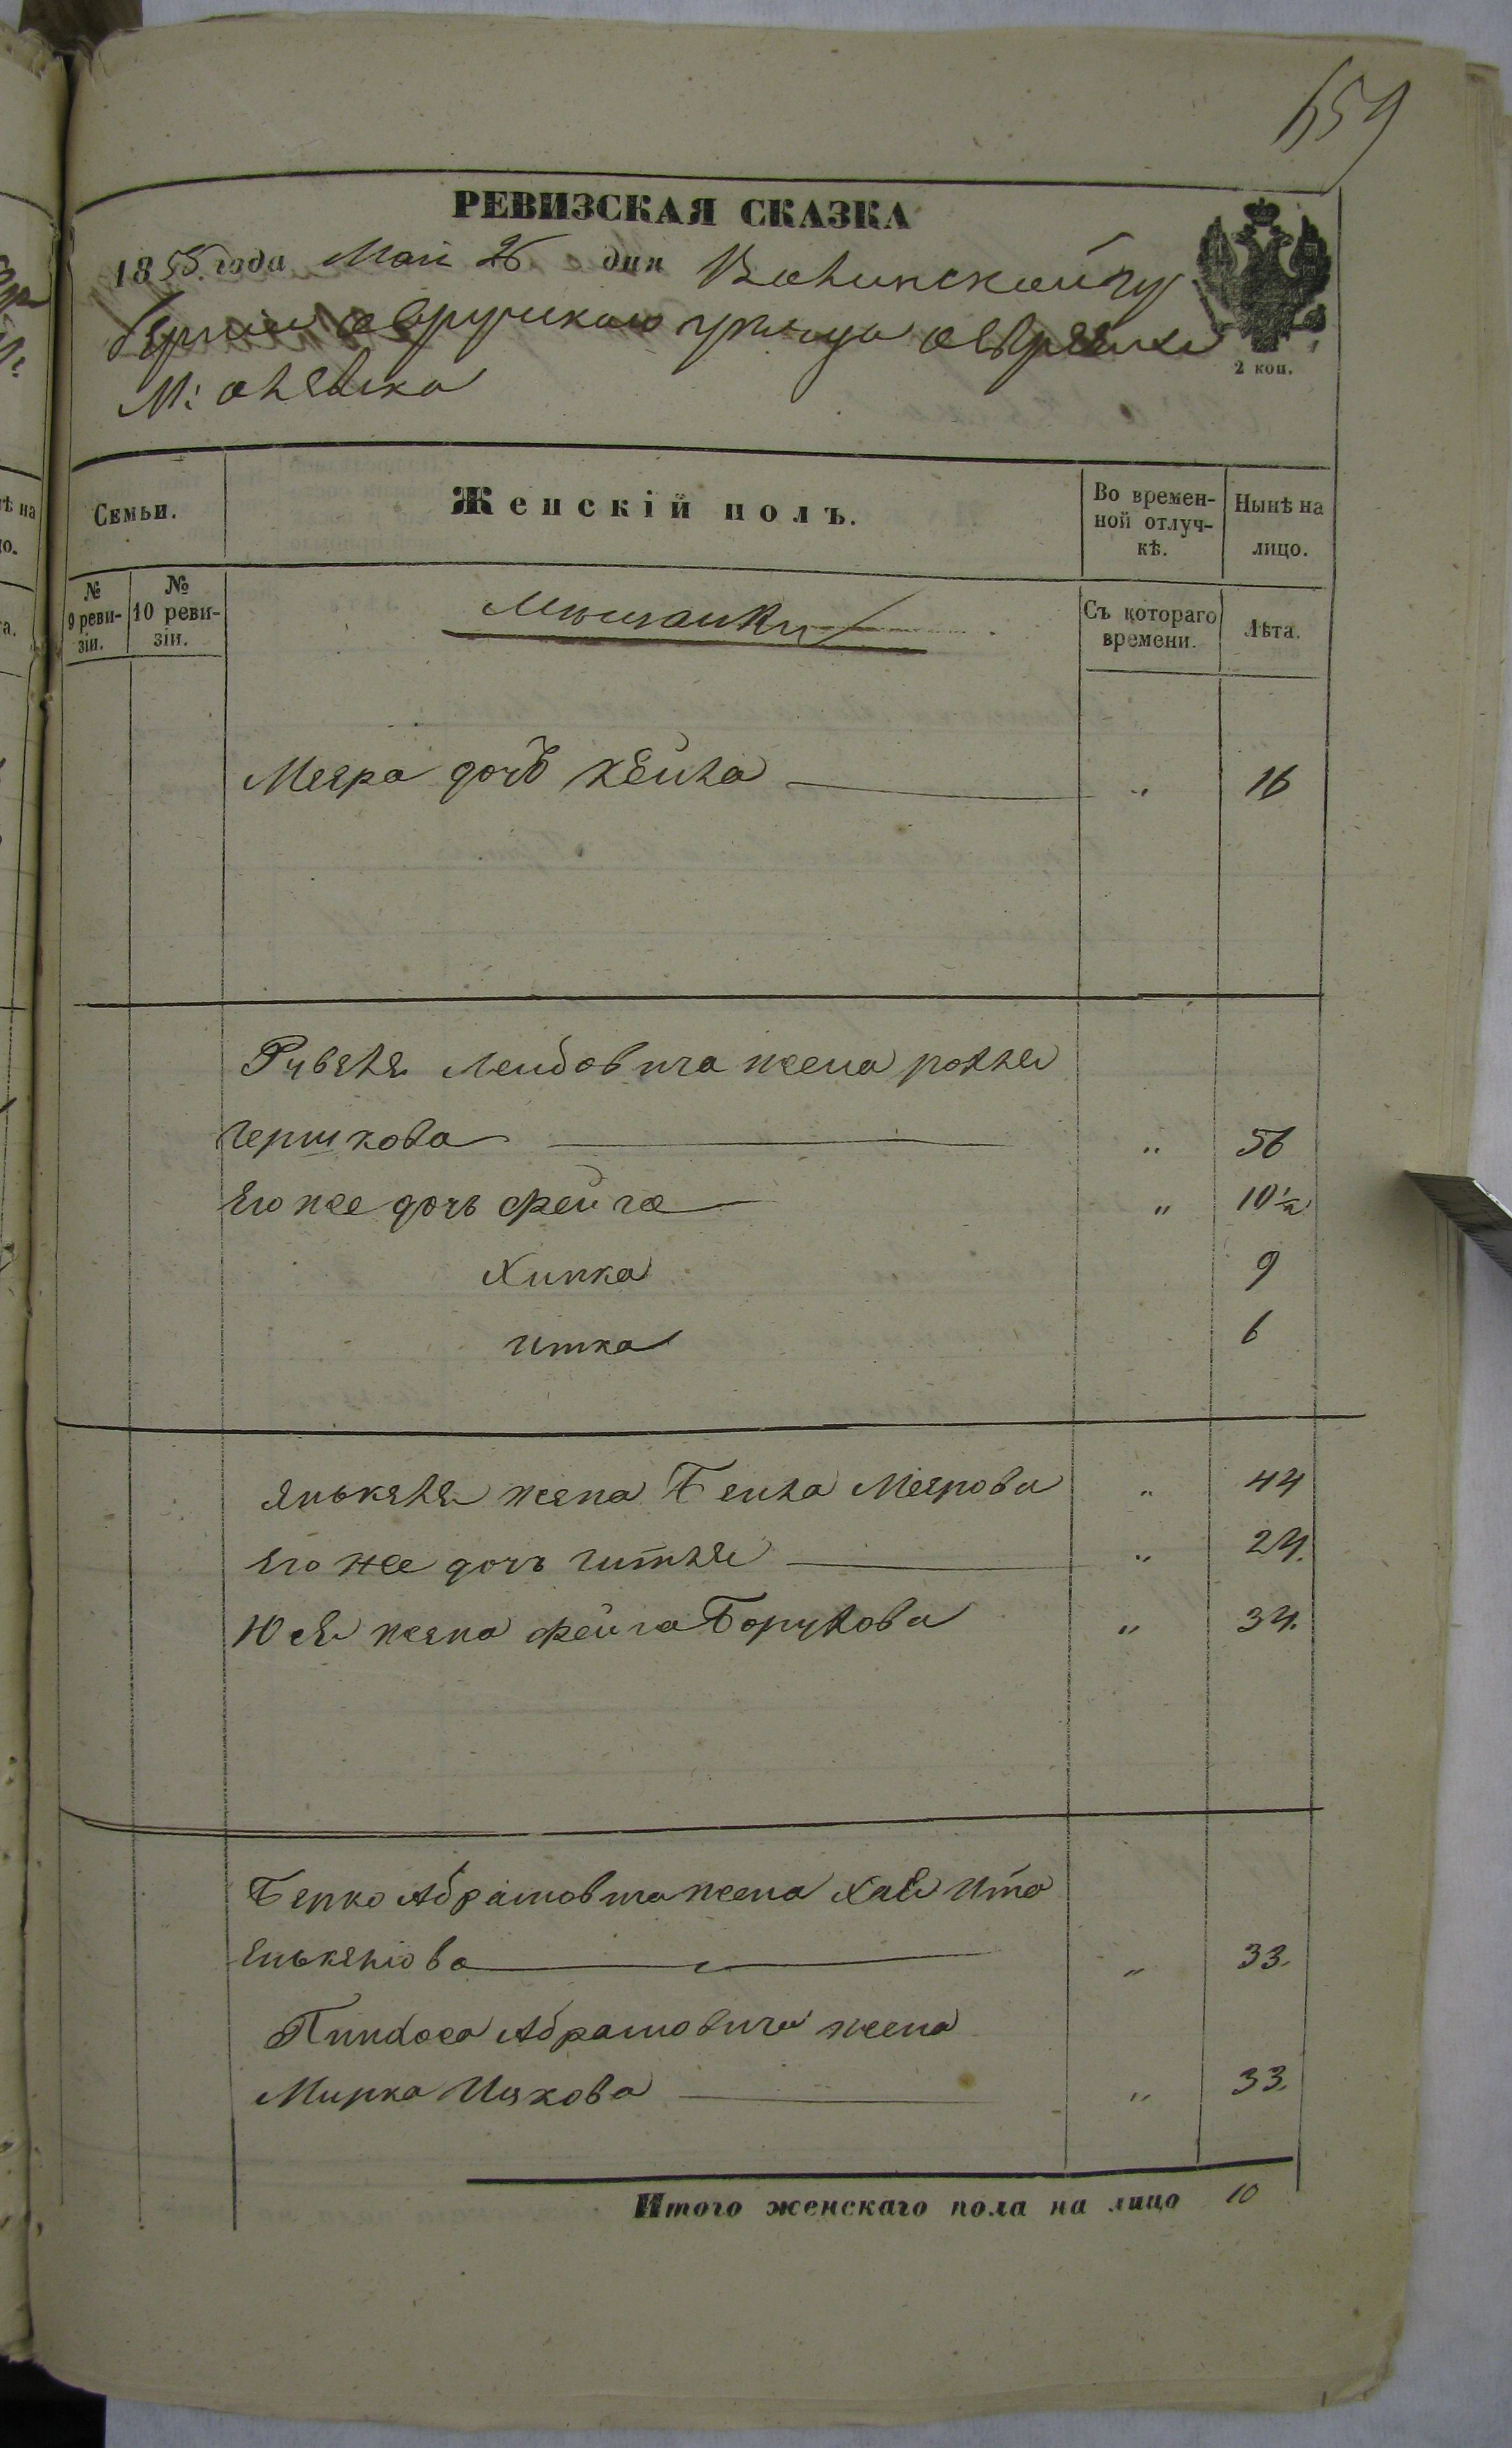 659
РЕВИЗСКАЯ СКАЗКА
1858 года Мая 26 дня Волинской гу
бернии овручскаго уезда еврейки
М: олевска
2 коп.
Семьи.
Женскій полъ.
Во времен-
ной отлуч-
кѣ.
Нынѣ на
лицо.
№
9 реви-
зіи.
№
10 реви-
зіи.
Мещанки
Съ котораго
времени.
Лѣта.
Меера дочь хейла „ 16
Рувеля Лейбовича жена рохля
гершкова „ 56
Его же дочь фейга „ 10½
Хипка 9
итка 6
Янькеля жена Бейла Меерова „ 44
Его же дочь гитля „ 24.
Юся жена фейга Борухова „ 34.
Берко Абрамовича жена Хая ита
Енькеліова „ 33.
Пинхоса Абрамовича жена
Мирка Ицкова „ 33.
Итого женскаго пола на лицо 10